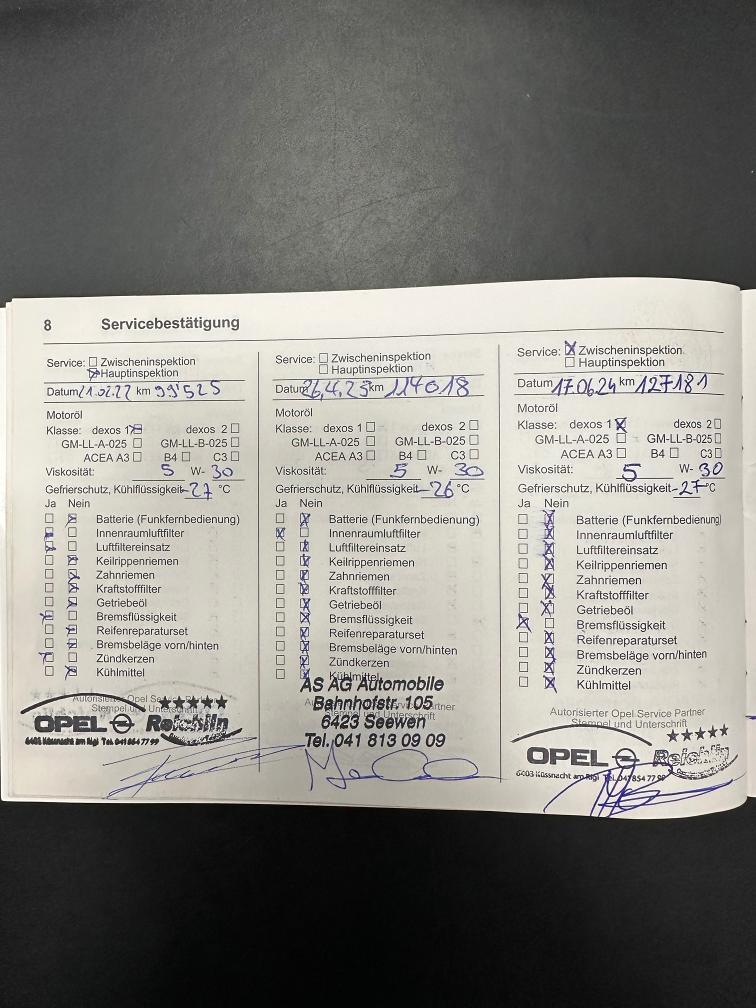 8 Servicebestätigung
Service: Zwischeninspektion
Hauptinspektion
Datum 21.02.22 km 99'525
Motoröl
Klasse: dexos 1 dexos 2
GM-LL-A-025 GM-LL-B-025
ACEA A3 B4 C3
Viskosität: 5 W- 30
Gefrierschutz, Kühlflüssigkeit -27 °C
Ja Nein
Batterie (Funkfernbedienung)
Innenraumluftfilter
Luftfiltereinsatz
Keilrippenriemen
Zahnriemen
Kraftstofffilter
Getriebeöl
Bremsflüssigkeit
Reifenreparaturset
Bremsbeläge vorn/hinten
Zündkerzen
Kühlmittel
Autorisierter Opel Service
Stempel und Unterschrift
OPEL Reichlin
6403 Küssnacht am Rigi Tel. 041 854 77 99
Service: Zwischeninspektion
Hauptinspektion
Datum 26.4.23 km 114018
Motoröl
Klasse: dexos 1 dexos 2
GM-LL-A-025 GM-LL-B-025
ACEA A3 B4 C3
Viskosität: 5 W- 30
Gefrierschutz, Kühlflüssigkeit -26 °C
Ja Nein
Batterie (Funkfernbedienung)
Innenraumluftfilter
Luftfiltereinsatz
Keilrippenriemen
Zahnriemen
Kraftstofffilter
Getriebeöl
Bremsflüssigkeit
Reifenreparaturset
Bremsbeläge vorn/hinten
Zündkerzen
Kühlmittel
AS AG Automobile
Bahnhofstr. 105
6423 Seewen
Tel. 041 813 09 09
Partner
Stempel und Unterschrift
Service: Zwischeninspektion
Hauptinspektion
Datum 17.06.24 km 127181
Motoröl
Klasse: dexos 1 dexos 2
GM-LL-A-025 GM-LL-B-025
ACEA A3 B4 C3
Viskosität: 5 W- 30
Gefrierschutz, Kühlflüssigkeit -27 °C
Ja Nein
Batterie (Funkfernbedienung)
Innenraumluftfilter
Luftfiltereinsatz
Keilrippenriemen
Zahnriemen
Kraftstofffilter
Getriebeöl
Bremsflüssigkeit
Reifenreparaturset
Bremsbeläge vorn/hinten
Zündkerzen
Kühlmittel
Autorisierter Opel Service Partner
Stempel und Unterschrift
OPEL Reichlin
6403 Küssnacht am Rigi Tel. 041 854 77 99